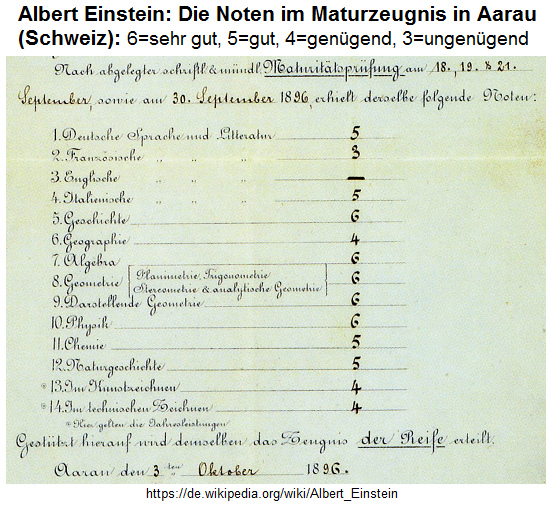 Albert Einstein: Die Noten im Maturzeugnis in Aarau
(Schweiz): 6=sehr gut, 5=gut, 4=genügend, 3=ungenügend
Nach abgelegter schriftl. & mündl. Maturitätsprüfung am 18., 19. & 21.
September, sowie am 30. September 1896, erhielt derselbe folgende Noten:
1. Deutsche Sprache und Litteratur 5
2. Französische " " " 3
3. Englische " " " —
4. Italienische " " " 5
5. Geschichte 6
6. Geographie 4
7. Algebra 6
8. Geometrie [Planimetrie, Trigonometrie 6
Stereometrie & analytische Geometrie]
9. Darstellende Geometrie 6
10. Physik 6
11. Chemie 5
12. Naturgeschichte 5
* 13. Im Kunstzeichnen 4
* 14. Im technischen Zeichnen 4
* Hier gelten die Jahresleistungen
Gestützt hierauf wird demselben das Zeugnis der Reife erteilt.
Aarau den 3ten Oktober 1896.
https://de.wikipedia.org/wiki/Albert_Einstein